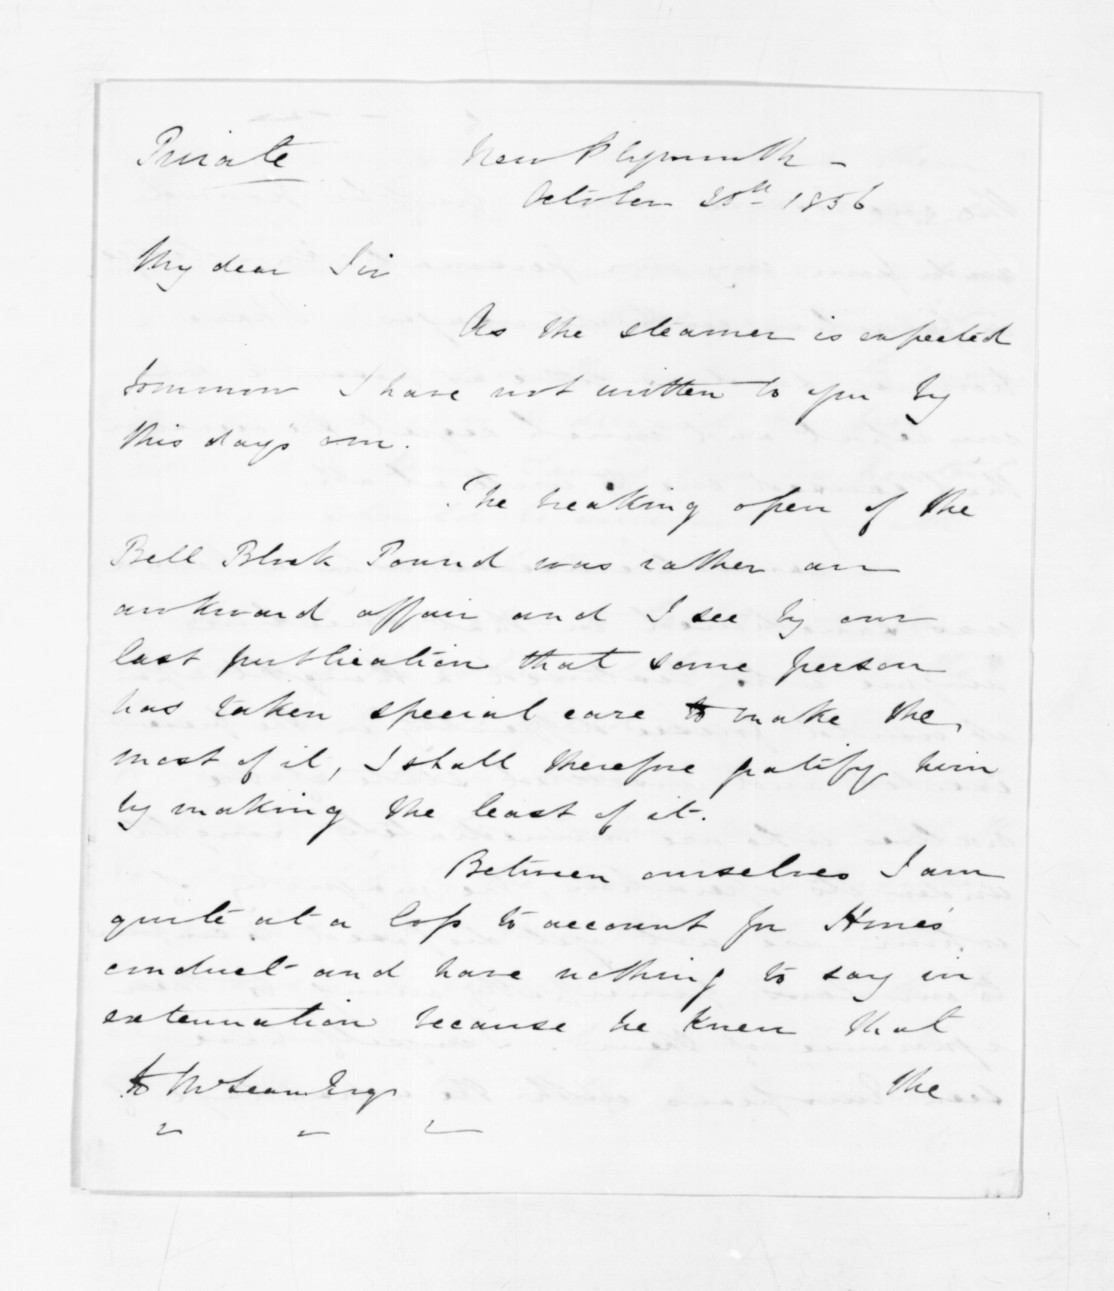 Private New Plymouth -
October 25th 1856
My dear Sir
As the steamer is expected
tomorrow I have not written to you by
this days om.
The breaking open of the
Bell Block Pound was rather an
awkward affair and I see by our
last publication that some person
has taken special care to make the
most of it, I shall therefore gratify him
by making the least of it.
Between ourselves I am
quite at a loss to account for Hine's
conduct and have nothing to say in
extenuation because he knew that
to McLean Esqr the